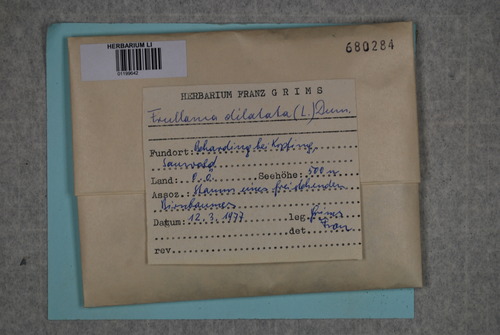 HERBARIUM LI
680284
HERBARIUM FRANZ GRIMS
Frullania dilatata (L.) Dum.
Fundort: bei Kopfing,
Sauwald
Land: O.Ö. Seehöhe: 500 m
Assoz. Stamm eines freistehenden
Birnbaumes
Datum: 12.3.1977 leg. Grims
det.
rev.